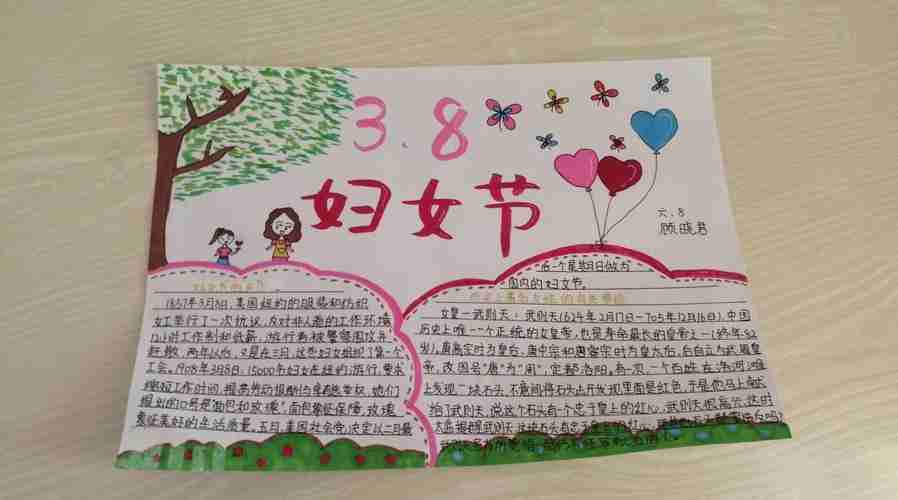 3.8
妇女节
六.8
顾晓君
1857年3月8日,美国纽约的服装和纺织
女工举行了一次抗议,反对非人道的工作环境
12小时工作制和低薪,游行者被警察围攻并
赶散,两年以后,又是在三月,这些妇女组织了第一个
工会。1908年3月8日,15000名妇女在纽约游行,要求
缩短工作时间,提高劳动报酬与享有选举权,她们
提出的口号是"面包和玫瑰",面包象征保障,玫瑰
象征美好的生活质量。五月,美国社会党决定以二月最
后一个星期日做为
国内的妇女节。
女皇一武则天:武则天(624年2月17日-705年12月16日),中国
历史上唯一一个正统的女皇帝,也是寿命最长的皇帝之一(终年82
岁),唐高宗时为皇后,唐中宗和唐睿宗时为皇太后,后自立为武周皇
帝,改国名"唐"为"周",定都洛阳。有一次,一个百姓在洛河滩
上发现一块石头,不意间将石头凿开发现里面是红色,于是他马上
给了武则天,说这个石头有个忠于皇上的红心,武则天很高兴,这时